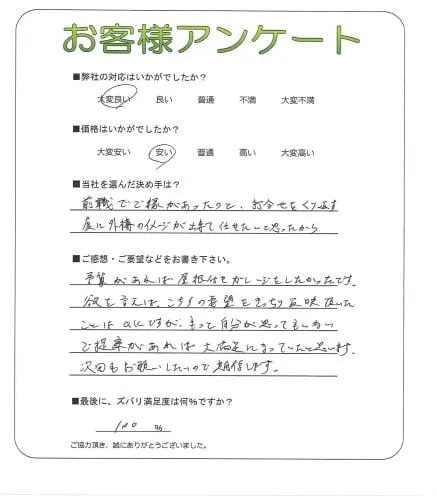 お客様アンケート
■弊社の対応はいかがでしたか？
大変良い 良い 普通 不満 大変不満
■価格はいかがでしたか？
大変安い 安い 普通 高い 大変高い
■当社を選んだ決め手は？
前職でご縁があったのと、打合せをくり返す
度に外構のイメージが出来て任せたいと思ったから
■ご感想・ご要望などをお書き下さい。
予算があれば屋根付きガレージをしたかったです。
欲を言えば、こちらの要望をきっちり反映頂いた
ことはOKですが、もっと自分が思ってもいない
ご提案があれば大満足になっていたと思います。
次回もお願いしたいので期待します。
■最後に、ズバリ満足度は何%ですか？
100 %
ご協力頂き、誠にありがとうございました。